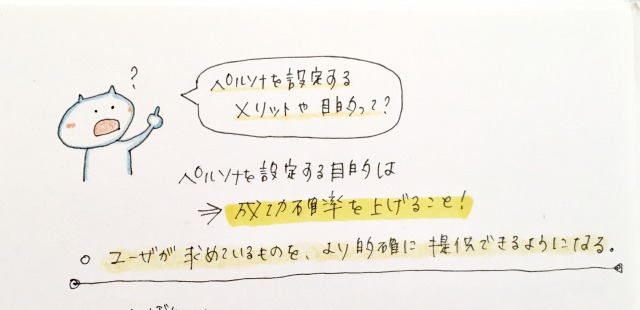 ?
ペルソナを設定する
メリットや目的って?
ペルソナを設定する目的は
⇒ 成功確率を上げること!
○ ユーザが求めているものを、より的確に提供できるようになる。